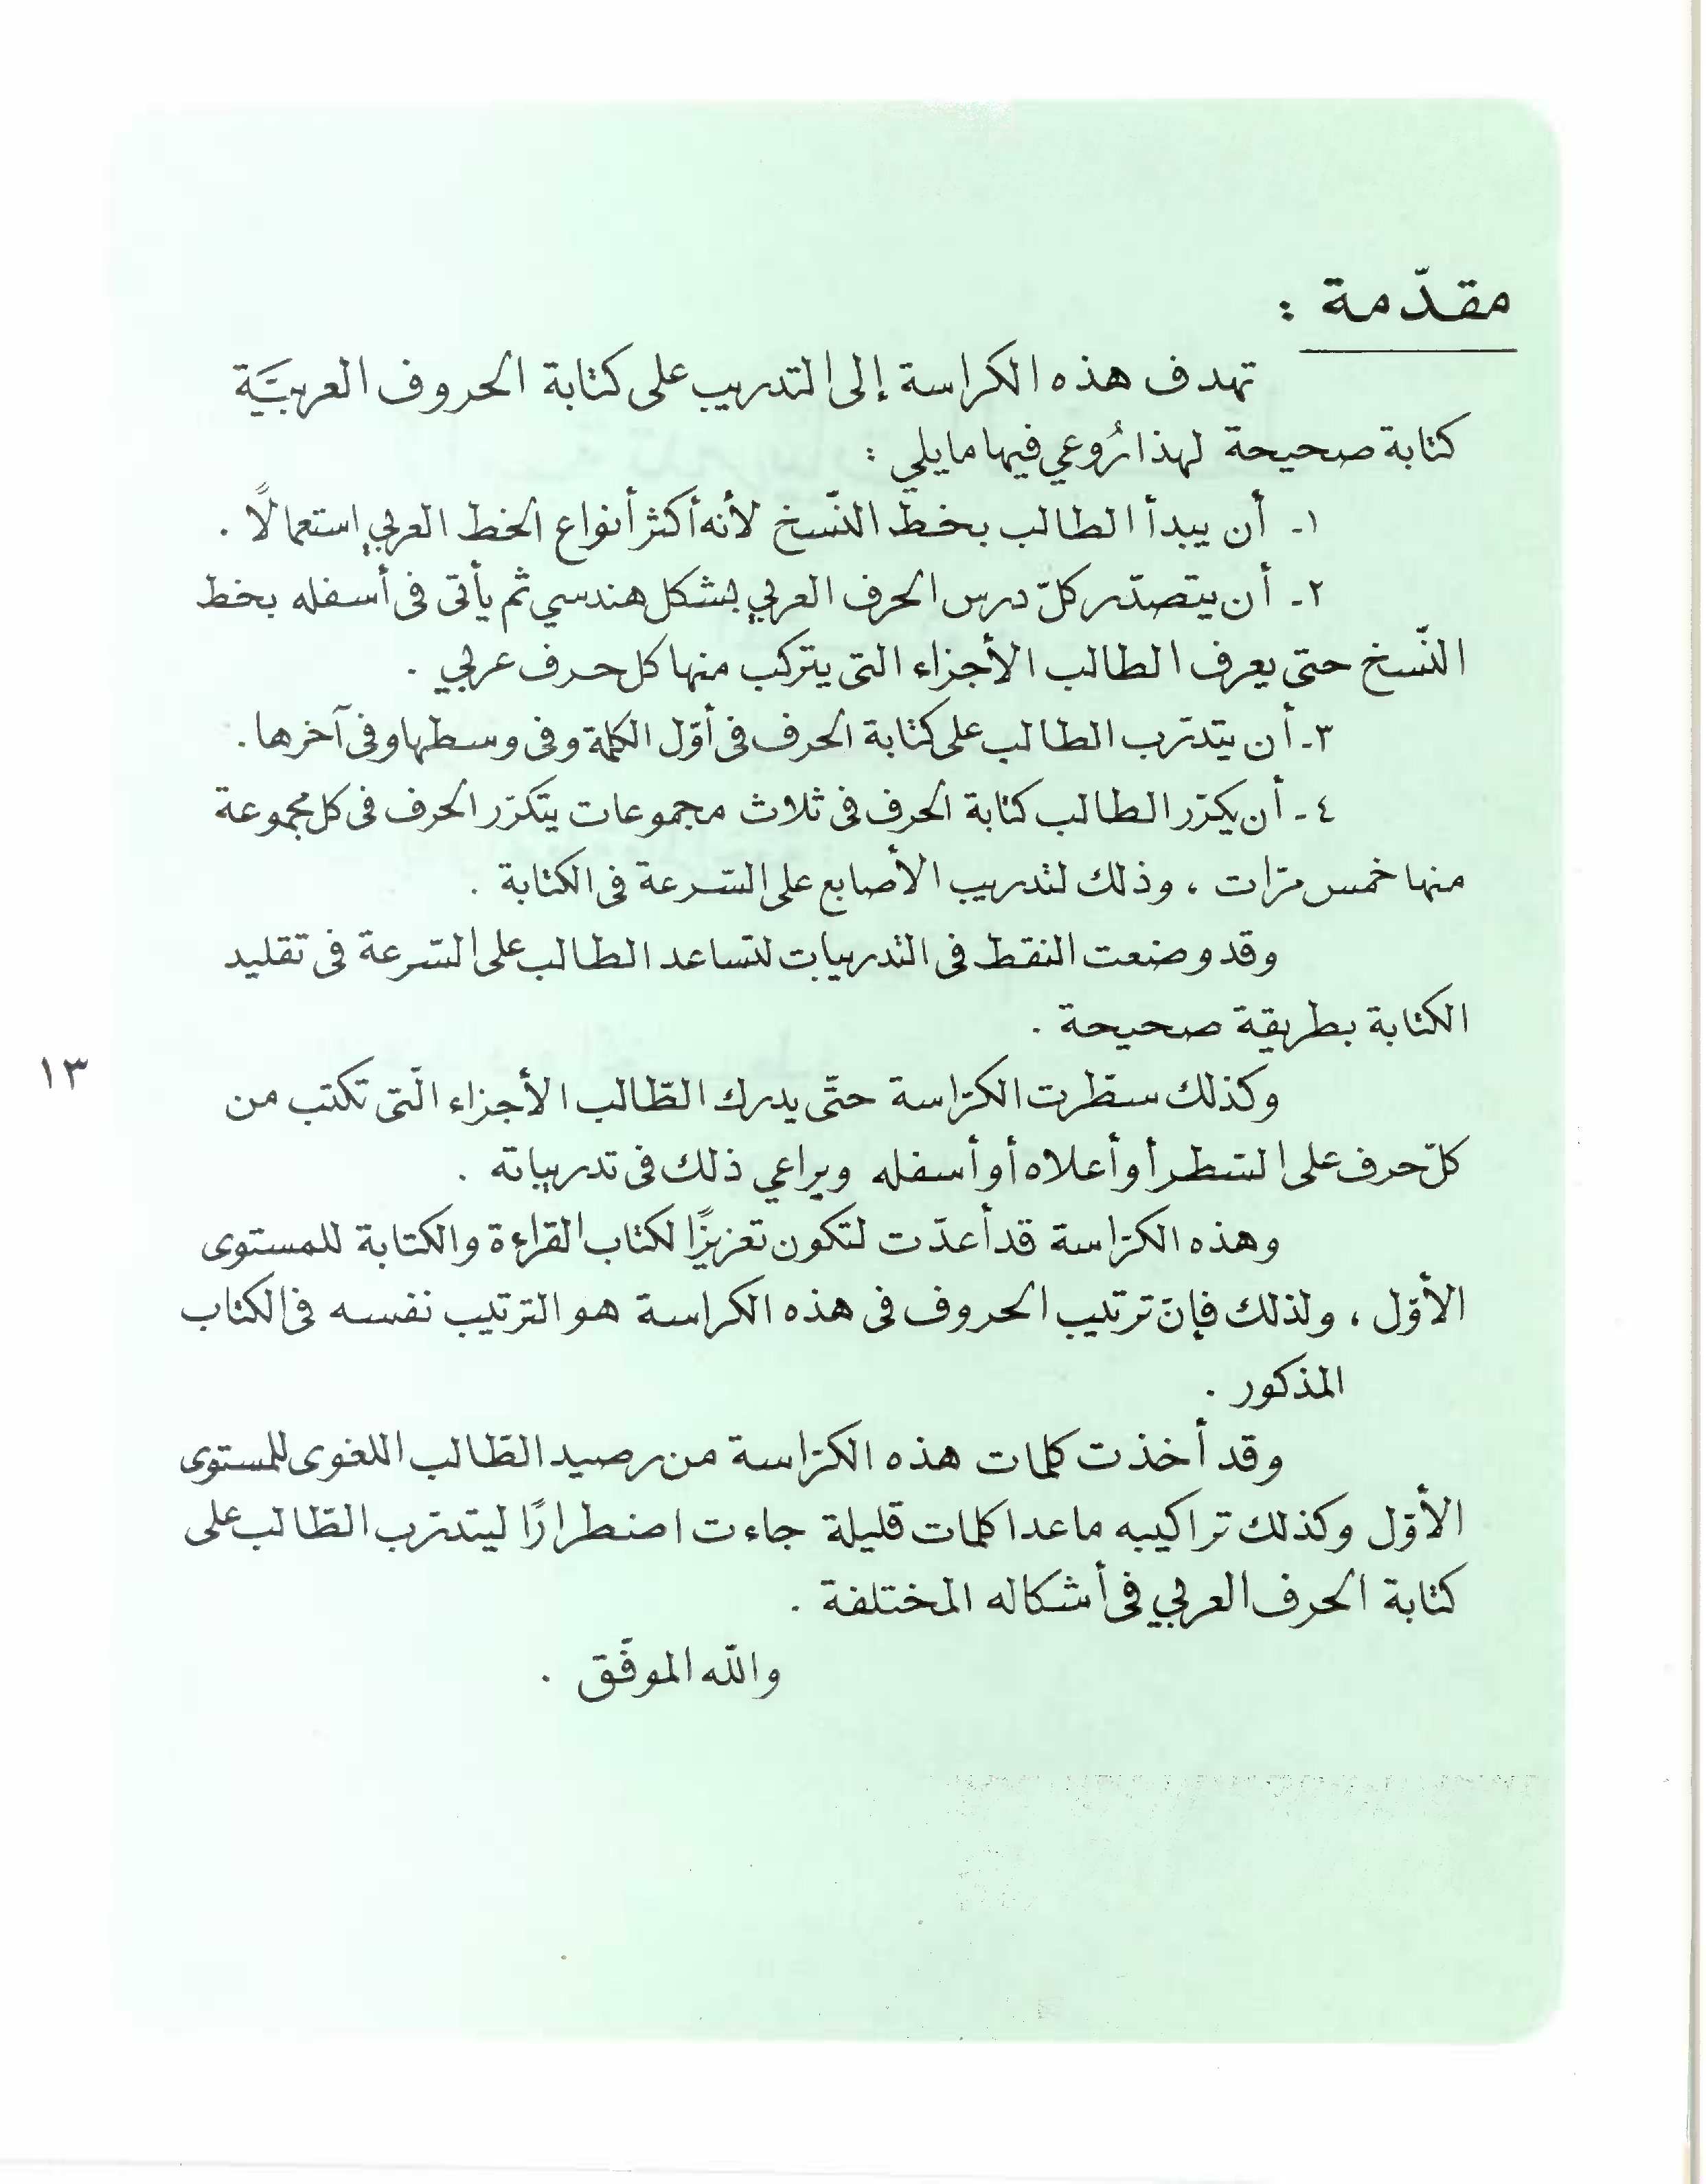 مقدّمة :
تهدف هذه الكراسة إلى التدريب على كتابة الحروف العربيَّة
كتابة صحيحة لهذا رُوعي فيها ما يلي :
١- أن يبدأ الطالب بخطّ النّسخ لأنه أكثر أنواع الخط العربي استعمالًا .
٢- أن يتصدّر كلّ درس الحرف العربي بشكل هندسي ثم يأتى فى أسفله بخط
النّسخ حتى يعرف الطالب الأجزاء التى يتركب منها كل حرف عربي .
٣- أن يتدرّب الطالب على كتابة الحرف فى أوّل الكلمة وفى وسطها وفى آخرها .
٤- أن يكرّر الطالب كتابة الحرف فى ثلاث مجموعات يتكرّر الحرف فى كل مجموعة
منها خمس مرّات ، وذلك لتدريب الأصابع على السّرعة فى الكتابة .
وقد وضعت النقط فى التدريبات لتساعد الطالب على السّرعة فى تقليد
الكتابة بطريقة صحيحة .
١٣
وكذلك سطّرت الكرّاسة حتّى يدرك الطّالب الأجزاء الّتى تكتب من
كلّ حرف على السّطر أو أعلاه أو أسفله ويراعي ذلك فى تدريباته .
وهذه الكرّاسة قد أعدّت لتكون تعزيزًا لكتاب القراءة والكتابة للمستوى
الأوّل ، ولذلك فإنّ ترتيب الحروف فى هذه الكراسة هو الترتيب نفسه فى الكتاب
المذكور .
وقد أخذت كلمات هذه الكرّاسة من رصيد الطّالب اللغوى للمستوى
الأوّل وكذلك تراكيبه ماعدا كلمات قليلة جاءت اضطرارًا ليتدرّب الطّالب على
كتابة الحرف العربي فى أشكاله المختلفة .
والله الموفّق .